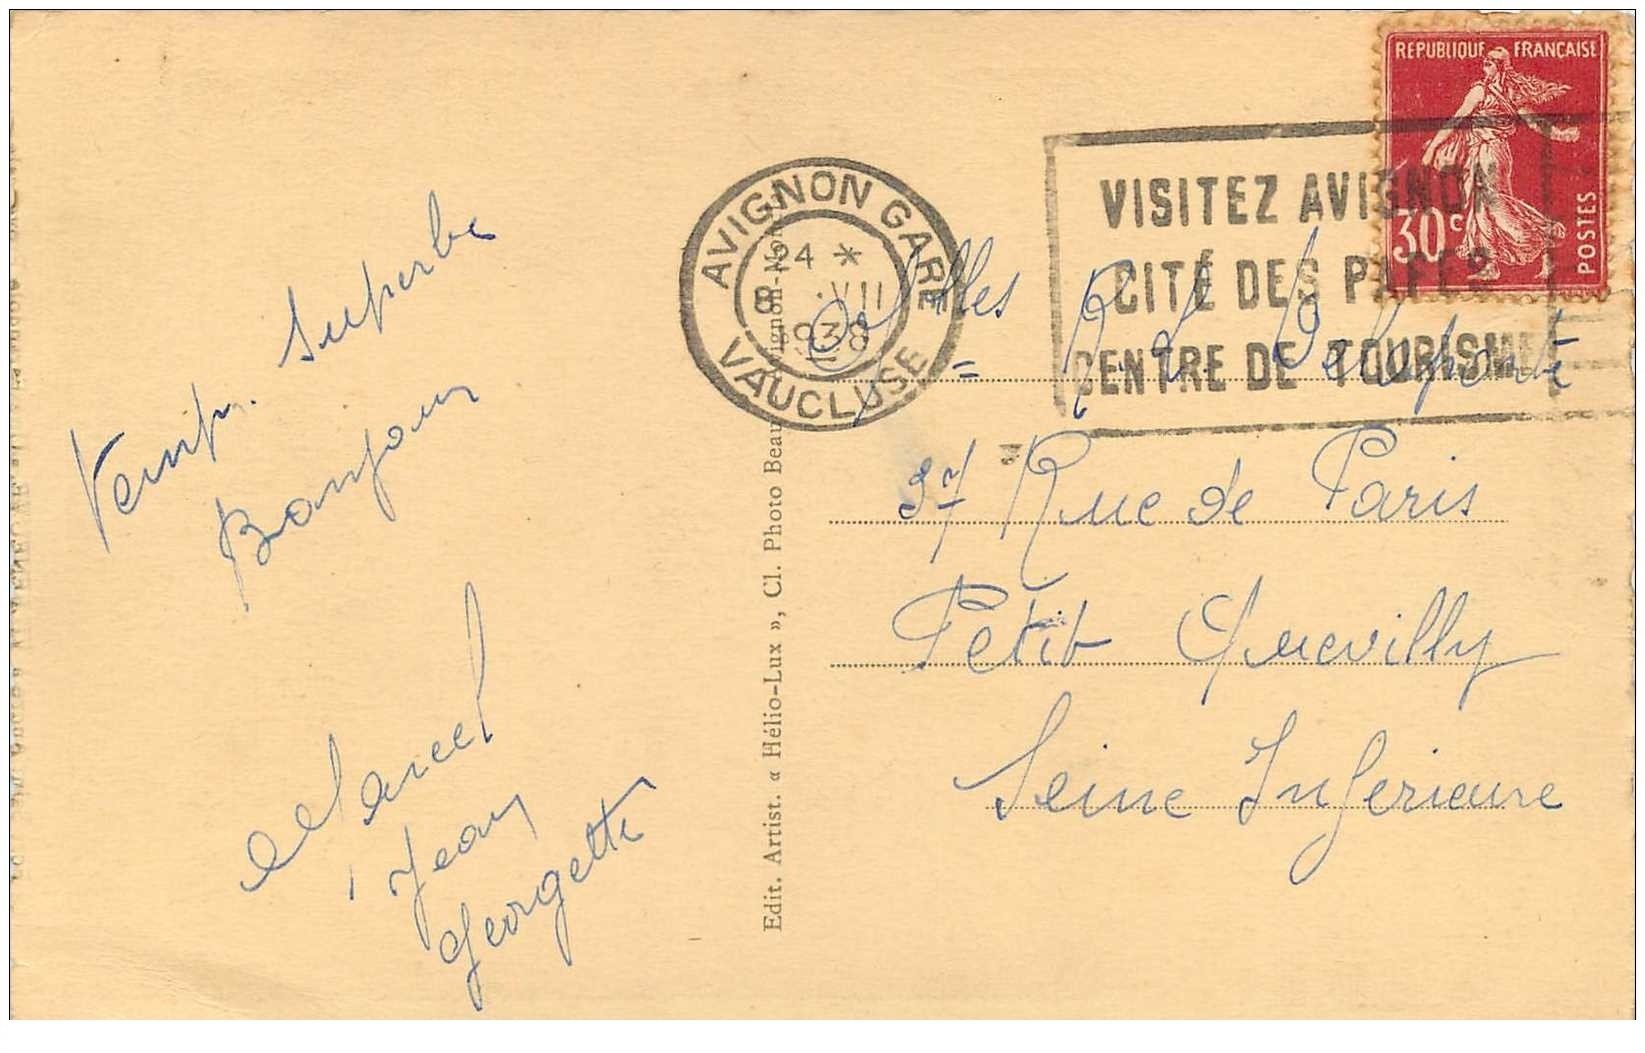 Temps superbe
Bonjour
Marcel
Jean
Georgette
Edit. Artist. « Hélio-Lux », Cl. Photo Beau
AVIGNON GARE
24 *
8 VII
1938
VAUCLUSE
VISITEZ AVIGNON
CITÉ DES PAPES
CENTRE DE TOURISME
REPUBLIQUE FRANÇAISE
30c
POSTES
37 Rue de Paris
Petit Quevilly
Seine Inferieure